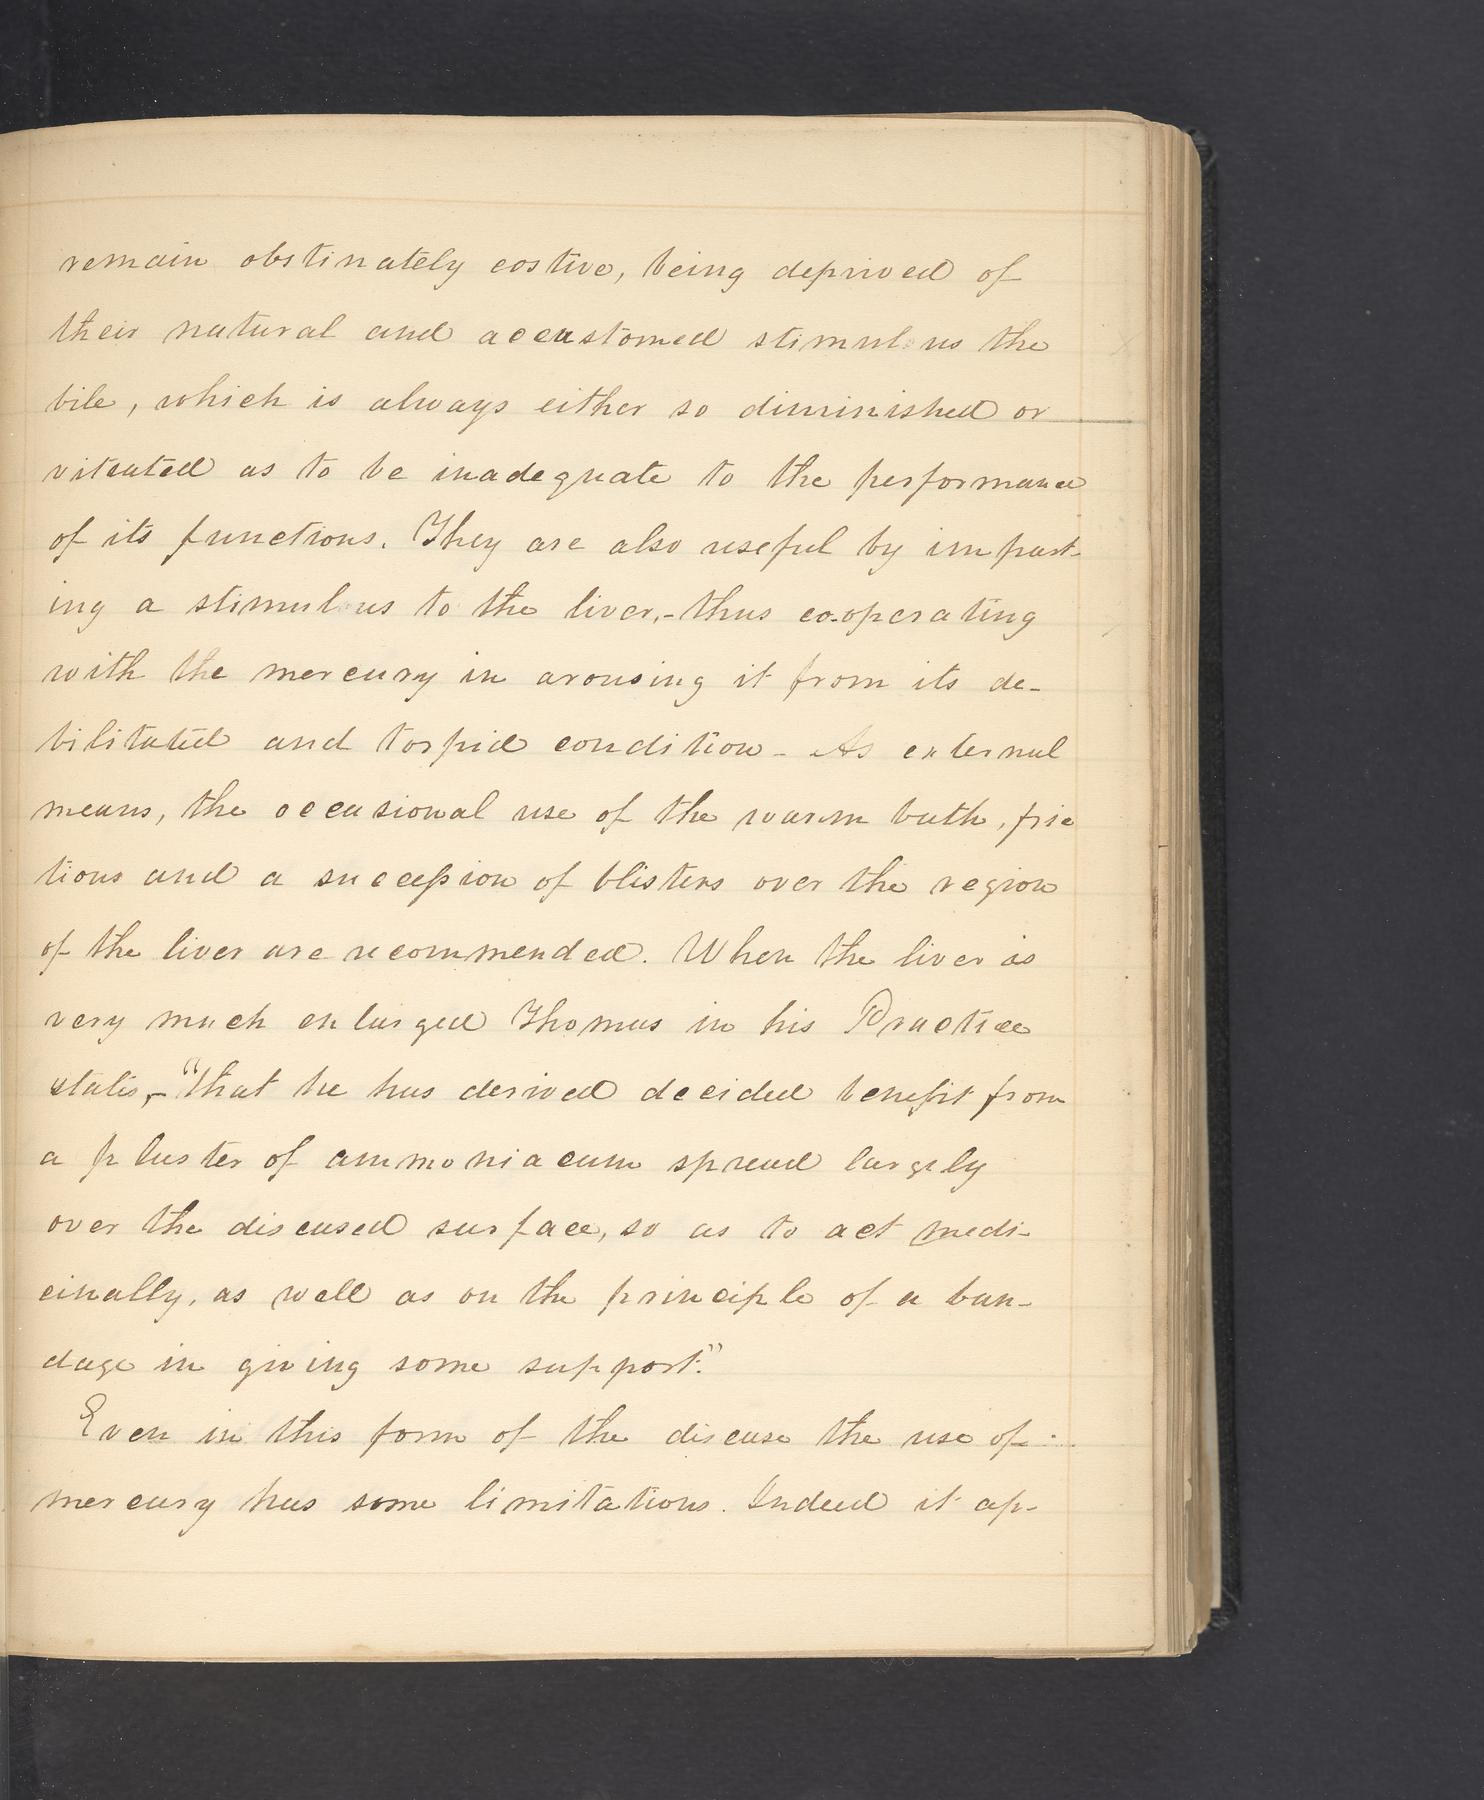 remain obstinately costive, being deprived of
their natural and accustomed stimulus the
bile, which is always either so diminished or
viteated as to be inadequate to the performance
of its functions. They are also useful by impart-
ing a stimulus to the liver,- thus co-operating
with the mercury in arousing it from its de-
bilitated and torpid condition - As external
means, the occasional use of the warm bath, fric
tions and a succession of blisters over the region
of the liver are recommended. When the liver is
very much enlarged Thomas in his Practice
states,- "that he has derived decided benefit from
a plaster of ammoniacum spread largely
over the diseased surface, so as to act medi-
cinally, as well as on the principle of a ban-
dage in giving some support."
Even in this form of the disease the use of
mercury has some limitations. Indeed it ap-